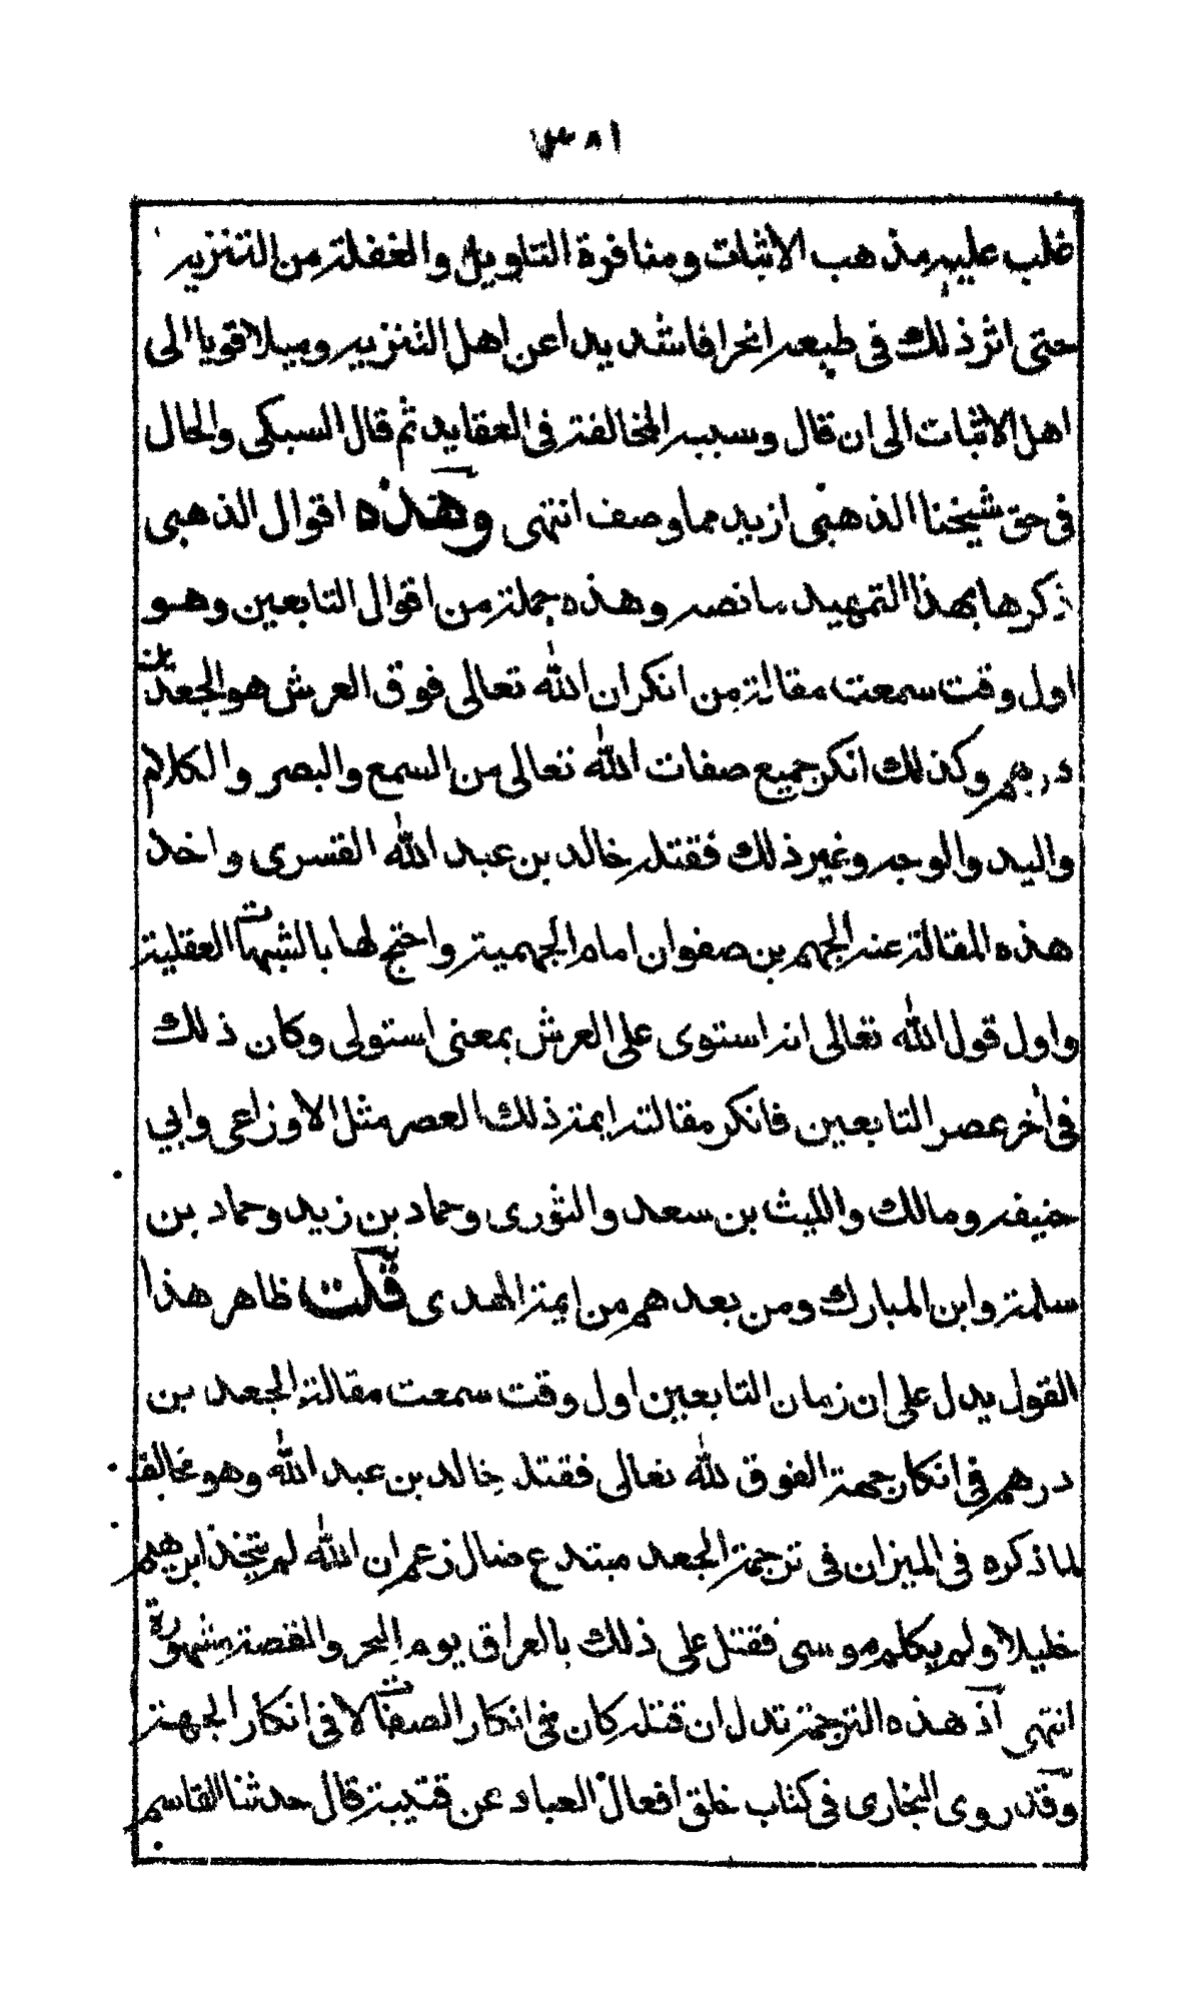 ٣٨١
غلب عليه مذهب الاثبات ومنافرة التاويل والغفلة من التنزيه
حتى اثر ذلك في طبعه انحرافا شديدا عن اهل التنزيه وميلا قويا الى
اهل الاثبات الى ان قال وسببه المخالفة في العقايد ثم قال السبكى والحال
في حق شيخنا الذهبى ازيد مما وصف انتهى وهذه اقوال الذهبى
ذكرها بهذا التمهيد ما نصه وهذه جملة من اقوال التابعين وهو
اول وقت سمعت مقالة من انكر ان الله تعالى فوق العرش هو الجعد بن
درهم وكذلك انكر جميع صفات الله تعالى من السمع والبصر والكلام
واليد والوجه وغير ذلك فقتله خالد بن عبد الله القسرى واخذ
هذه المقالة عنه الجهم بن صفوان امام الجهمية واحتج لها بالشبهات العقلية
واول قول الله تعالى انه استوى على العرش بمعنى استولى وكان ذلك
في اخر عصر التابعين فانكر مقالته ايمة ذلك العصر مثل الاوزاعى وابي
حنيفه ومالك والليث بن سعد والثورى وحماد بن زيد وحماد بن
سلمة وابن المبارك ومن بعدهم من ايمة الهدى قلت ظاهر هذا
القول يدل على ان زمان التابعين اول وقت سمعت مقالة الجعد بن
درهم في انكار جهة الفوق لله تعالى فقتله خالد بن عبد الله وهو مخالف
لما ذكره في الميزان في ترجمة الجعد مبتدع ضال زعم ان الله لم يتخذ ابرهيم
خليلا ولم يكلم موسى فقتل على ذلك بالعراق يوم النحر والقصة مشهورة
انتهى اذ هذه الترجمة تدل ان قتله كان في انكار الصفات لا في انكار الجهة
وقد روى البخارى في كتاب خلق افعال العباد عن قتيبة قال حدثنا القاسم